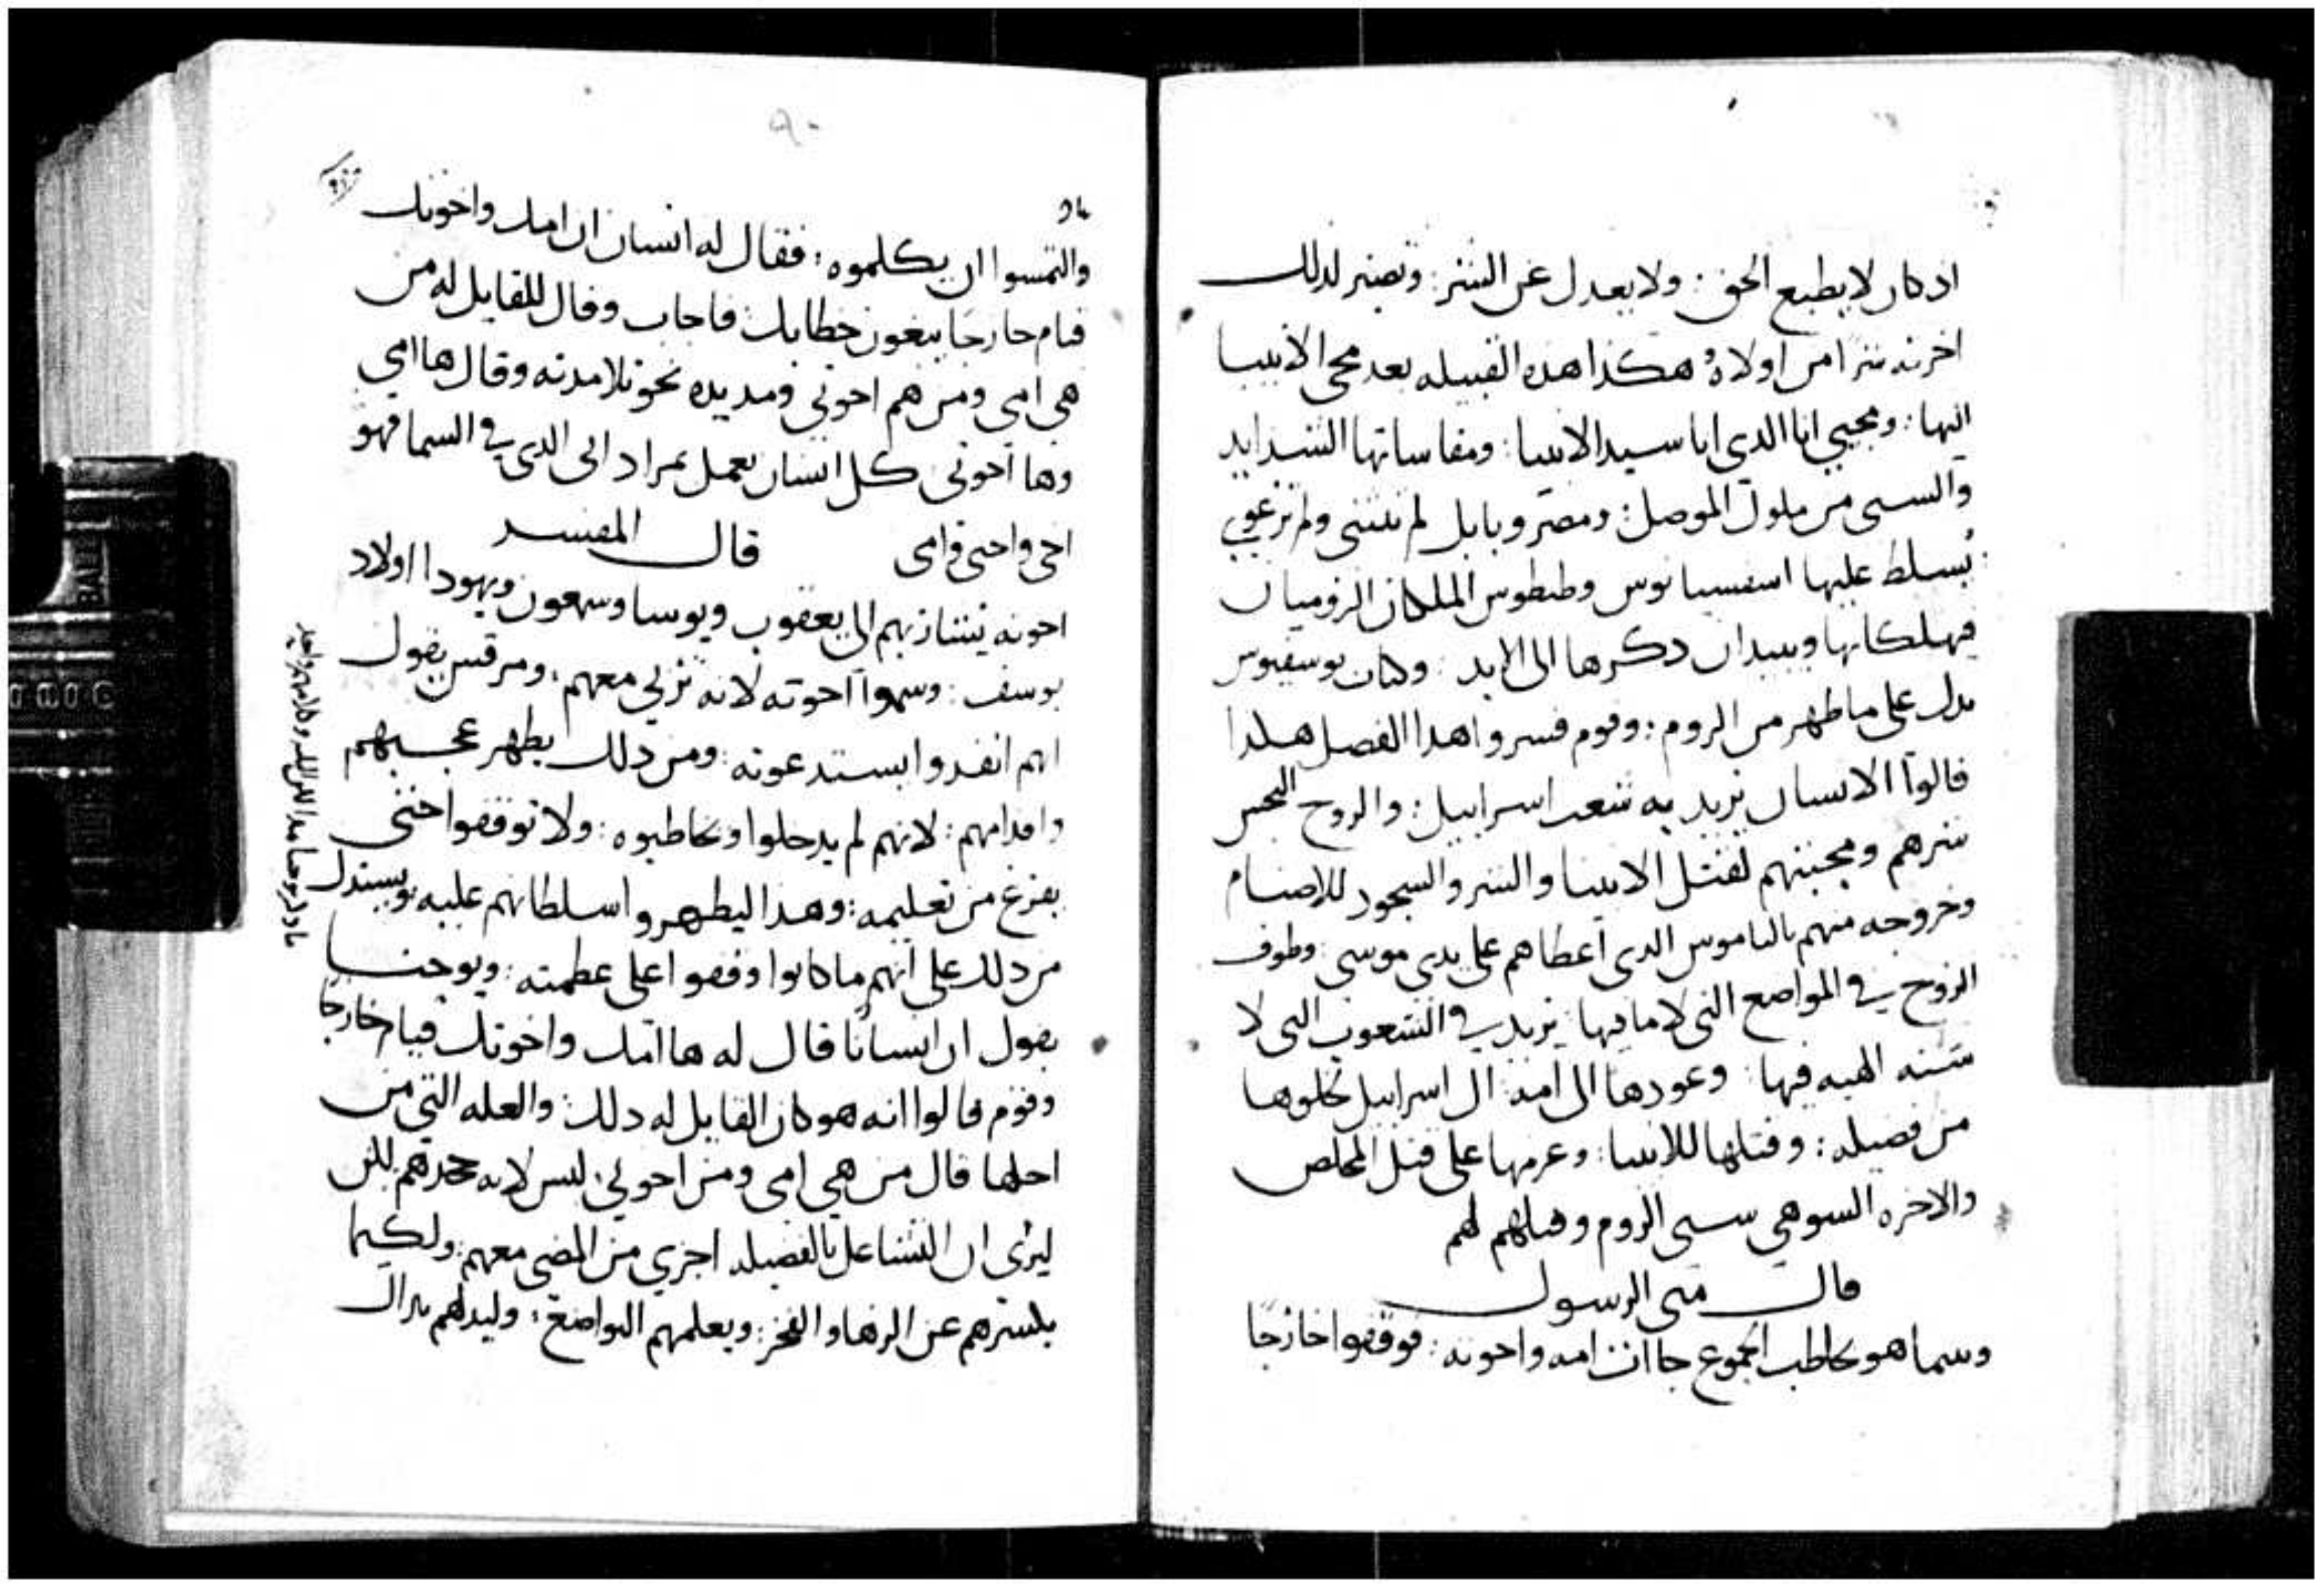 اذ كان لا يطيع الحق: ولا يعدل عن الشر: وتصير لذلك
اخرته شرا من اولاه هكذا هذه القبيله بعد مجى الانبيا
اليها: ومجيي انا الذى انا سيد الانبيا: ومقاساتها الشدايد
والسبى من ملوك الموصل: ومصر وبابل لم تنثنى ولم ترعوى
يسلط عليها اسفسيانوس وطيطوس الملكان الروميان
فيهلكانها ويبيدان ذكرها الى الابد: وكتاب يوسفيوس
يدل على ما ظهر من الروم: وقوم فسروا هذا الفصل هكذا
قالوا الانسان يريد به شعب اسراييل: والروح النجس
شرهم ومحبتهم لقتل الانبيا والشر والسجود للاصنام
وخروجه منهم بالناموس الذى اعطاهم على يدى موسى: وطوف
الروح في المواضع التى لا ما فيها: يريد في الشعوب التى لا
سنه الهيه فيها: وعودها الى امة ال اسراييل لخلوها
من فضيله: وقتلها للانبيا: وعزمها على قتل المخلص
والاخره السو هي سبى الروم وقتلهم لهم
قال متى الرسول
وبينما هو يخاطب الجموع جاات امه واخوته: فوقفوا خارجا
والتمسوا ان يكلموه: فقال له انسان ان امك واخوتك
قيام خارجا يبغون خطابك: فاجاب وقال للقايل له من
هى امى ومن هم اخوتي ومد يده نحو تلامذته وقال ها امى
وها اخوتى كل انسان يعمل بمراد ابى الذى في السما فهو
اخى واختى وامى قال المفسر
اخوته يشار بهم الى يعقوب ويوسا وسمعون ويهودا اولاد
يوسف: وسموا اخوته لانه تربي معهم: ومرقس يقول
انهم انفدوا يستدعونه: ومن ذلك يظهر عجبهم
واقدامهم: لانهم لم يدخلوا ويخاطبوه: ولا توقفوا حتى
يفرغ من تعليمه: وهذا ليظهروا سلطانهم عليه ويستدل
من ذلك على انهم ما كانوا وقفوا على عظمته: ويوحنا
يقول ان انسانا قال له ها امك واخوتك قيام خارجا
وقوم قالوا انه هو كان القايل له ذلك: والعله التي من
اجلها قال من هي امى ومن اخوتي: ليس لانه جحدهم لكن
ليرى ان التشاغل بالفضيله اجزي من المضى معهم: ولكيما
يكسرهم عن الزها والفخر: ويعلمهم التواضع: وليدلهم بذاك